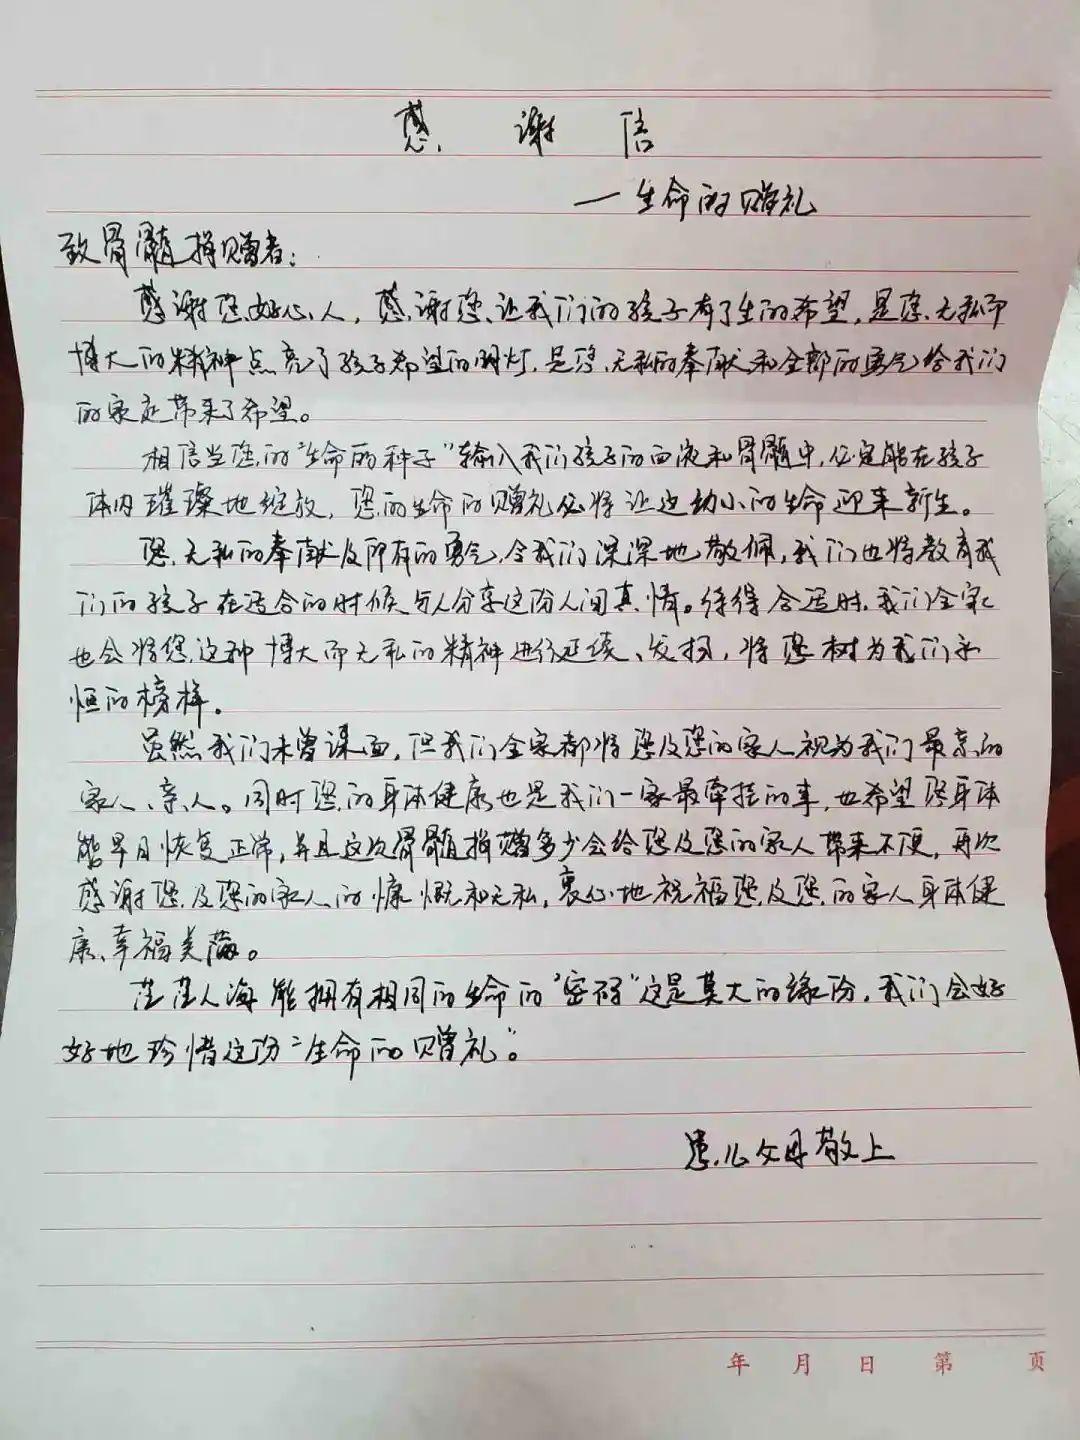 感谢信
—生命的赠礼
致骨髓捐赠者：
感谢您好心人，感谢您让我们的孩子有了生的希望，是您无私而
博大的精神点亮了孩子希望的明灯，是您无私的奉献和全部的勇气给我们
的家庭带来了希望。
相信当您的"生命的种子"输入我们孩子的血液和骨髓中，必定能在孩子
体内璀璨地绽放，您的生命的赠礼必将让这幼小的生命迎来新生。
您无私的奉献及所有的勇气令我们深深地敬佩，我们也将教育我
们的孩子在适合的时候与人分享这份人间真情。待得合适时，我们全家
也会将您这种博大而无私的精神进行延续、发扬，将您树为我们永
恒的榜样。
虽然我们未曾谋面，但我们全家都将您及您的家人视为我们最亲的
家人、亲人。同时您的身体健康也是我们一家最牵挂的事，也希望您身体
能早日恢复正常，并且这次骨髓捐赠多少会给您及您的家人带来不便，再次
感谢您及您的家人的慷慨和无私，衷心地祝福您及您的家人身体健
康、幸福美满。
茫茫人海能拥有相同的生命的"密码"这是莫大的缘份，我们会好
好地珍惜这份"生命的赠礼"。
患儿父母敬上
年 月 日 第 页